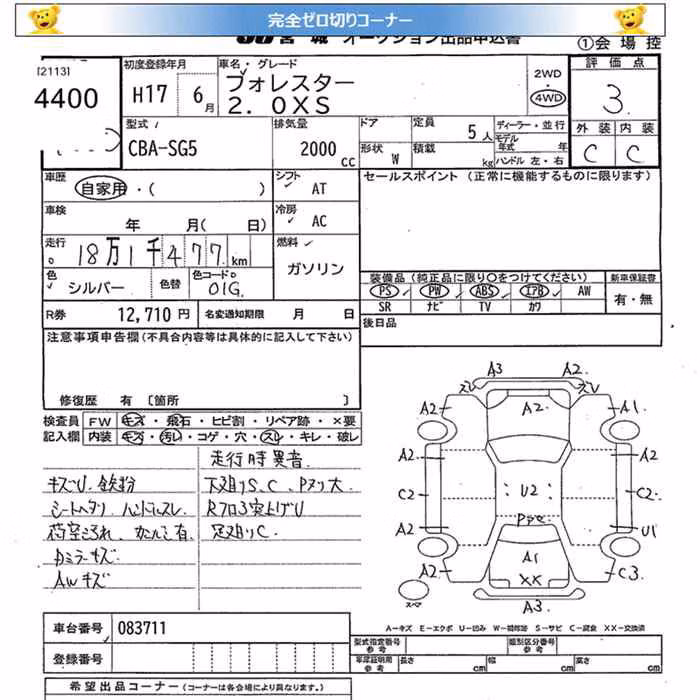 完全ゼロ切りコーナー
宮城 オークション出品申込書
①会場控
[2113]
4400
初度登録年月
H17 6月
車名・グレード
フォレスター
2.0XS
2WD
・
4WD
評価点
3
外装 内装
C C
型式
CBA-SG5
排気量
2000cc
ドア
形状 W
定員 5人
積載 kg
ディーラー・並行
モデル年式 年
ハンドル 左・右
車歴
自家用・( )
シフト AT
車検
年 月( 日)
冷房 AC
走行
18万1千477km
燃料
ガソリン
色 シルバー
色替
色コードNo
01G
R券 12,710円
名変通知期限 月 日
セールスポイント(正常に機能するものに限ります)
装備品(純正品に限り○をつけてください)
新車保証書
PS PW ABS エアB AW
SR ナビ TV カワ
有・無
後日品
注意事項申告欄(不具合内容等は具体的に記入して下さい)
修復歴 有 [箇所 ]
検査員 FW キズ・飛石・ヒビ割・リペア跡・×要
記入欄 内装 キズ・汚レ・コゲ・穴・スレ・キレ・破レ
走行時異音
キズU 鉄粉
シートヘタリ ハンドルスレ
Dミラーキズ
AWキズ
下廻りS.C
足廻りC
A3 A2
スレ スレ
A2 A2 A1
A2 A2
C2 U2 C2
A2 U1
A2 A1 C3
XX
A3
スペア
A−キズ E−エクボ U−凹み W−補修跡 S−サビ C−腐食 XX−交換済
車台番号 083711
登録番号
型式指定番号 参考
類別区分番号 参考
車庫証明用 参考 長さ cm 幅 cm 高さ cm
希望出品コーナー(コーナーは各会場により異なります。)